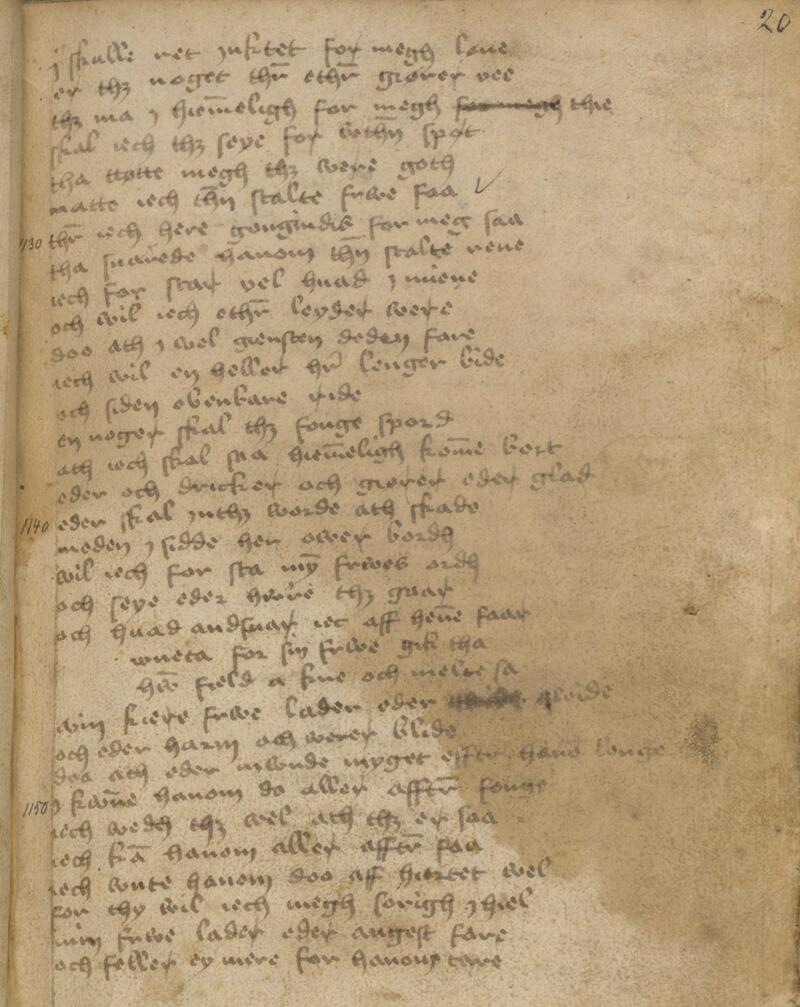 20
j skalle ret inktet for megh løue
er thz noget thr̄ ethr̄ giører vee
thz ma j hiem̄eligh for megh for megh thie
skal iech thz seye for wthn̄ spot
tha tøtte megh thz were goth
matte iech thn̄ stalte frwe faa
1130 thr̄ iech here gongindis for meg saa
tha suarede hanom thn̄ stalte rene
iech for star vel huad j mene
och wil iech ethr̄ leyder were
doo ath j wel giensten deden fare
iech wil en heller hr̄ lenger bide
och siden obenbare ride
en noger skal thz fonge spord
ath iech skal saa hiem̄eligh kom̄e bort
eder och dricker och giører eder glad
1140 eder skal inthz worde ath skade
meden j sidde her ower bordh
wil iech for sta my frwes ordh
och seye eder herre thz gaar
och huad andsuar iec aff hen̄e faar
wneta for sin frwe gik tha
hw̄ field a kne och melte sa
min kiere frwe lader eder qwide
och eder harm och werer blide
doo ath eder monde myget effter hano longe
1150 j kwn̄e hanom do aller afftr̄ fonge
iech wedh thz wel ath thz er saa
iech ka̅ hanom aller afftr̄ faa
iech wnte hanom doo aff hiertet wel
for thy wil iech megh sorigh ihiel
min frwe lader eder angest fare
och feller ey mere for hanom tare